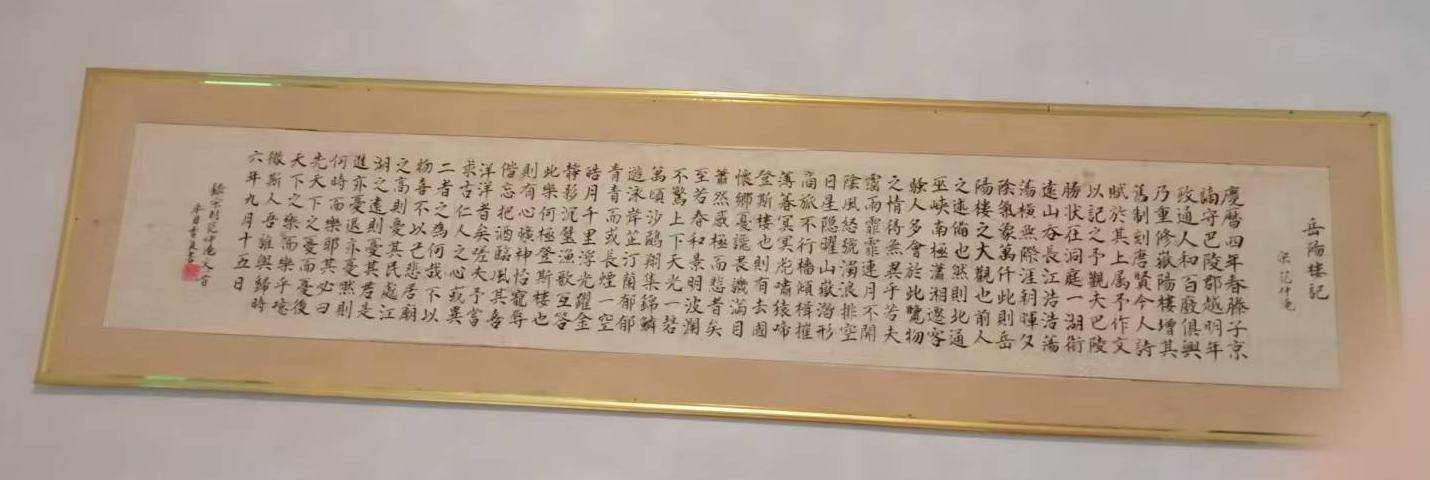 岳陽樓記
宋 范仲淹
慶曆四年春滕子京
謫守巴陵郡越明年
政通人和百廢俱興
乃重修嶽陽樓增其
舊制刻唐賢今人詩
賦於其上属予作文
以記之予觀夫巴陵
勝状在洞庭一湖銜
遠山吞長江浩浩蕩
蕩橫無際涯朝暉夕
陰氣象萬仟此則岳
陽樓之大觀也前人
之述備也然則北通
巫峽南極瀟湘遷客
騷人多會於此覽物
之情得無異乎若夫
霪雨霏霏連月不開
陰風怒號濁浪排空
日星隐曜山嶽潛形
商旅不行檣傾楫摧
薄暮冥冥虎嘯猿啼
登斯樓也則有去國
懷鄉憂讒畏譏滿目
蕭然感極而悲者矣
至若春和景明波瀾
不驚上下天光一碧
萬頃沙鷗翔集錦鱗
遊泳岸芷汀蘭郁郁
青青而或長煙一空
皓月千里浮光耀金
靜影沉璧漁歌互答
此樂何極登斯樓也
則有心曠神怡寵辱
偕忘把酒臨風其喜
洋洋者矣嗟夫予嘗
求古仁人之心或異
二者之為何哉不以
物喜不以己悲居廟
之高則憂其民處江
湖之遠則憂其君是
進亦憂退亦憂然則
何時而樂耶其必曰
先天下之憂而憂後
天下之樂而樂乎噫
微斯人吾誰與歸時
六年九月十五日
錄宋時范仲淹文